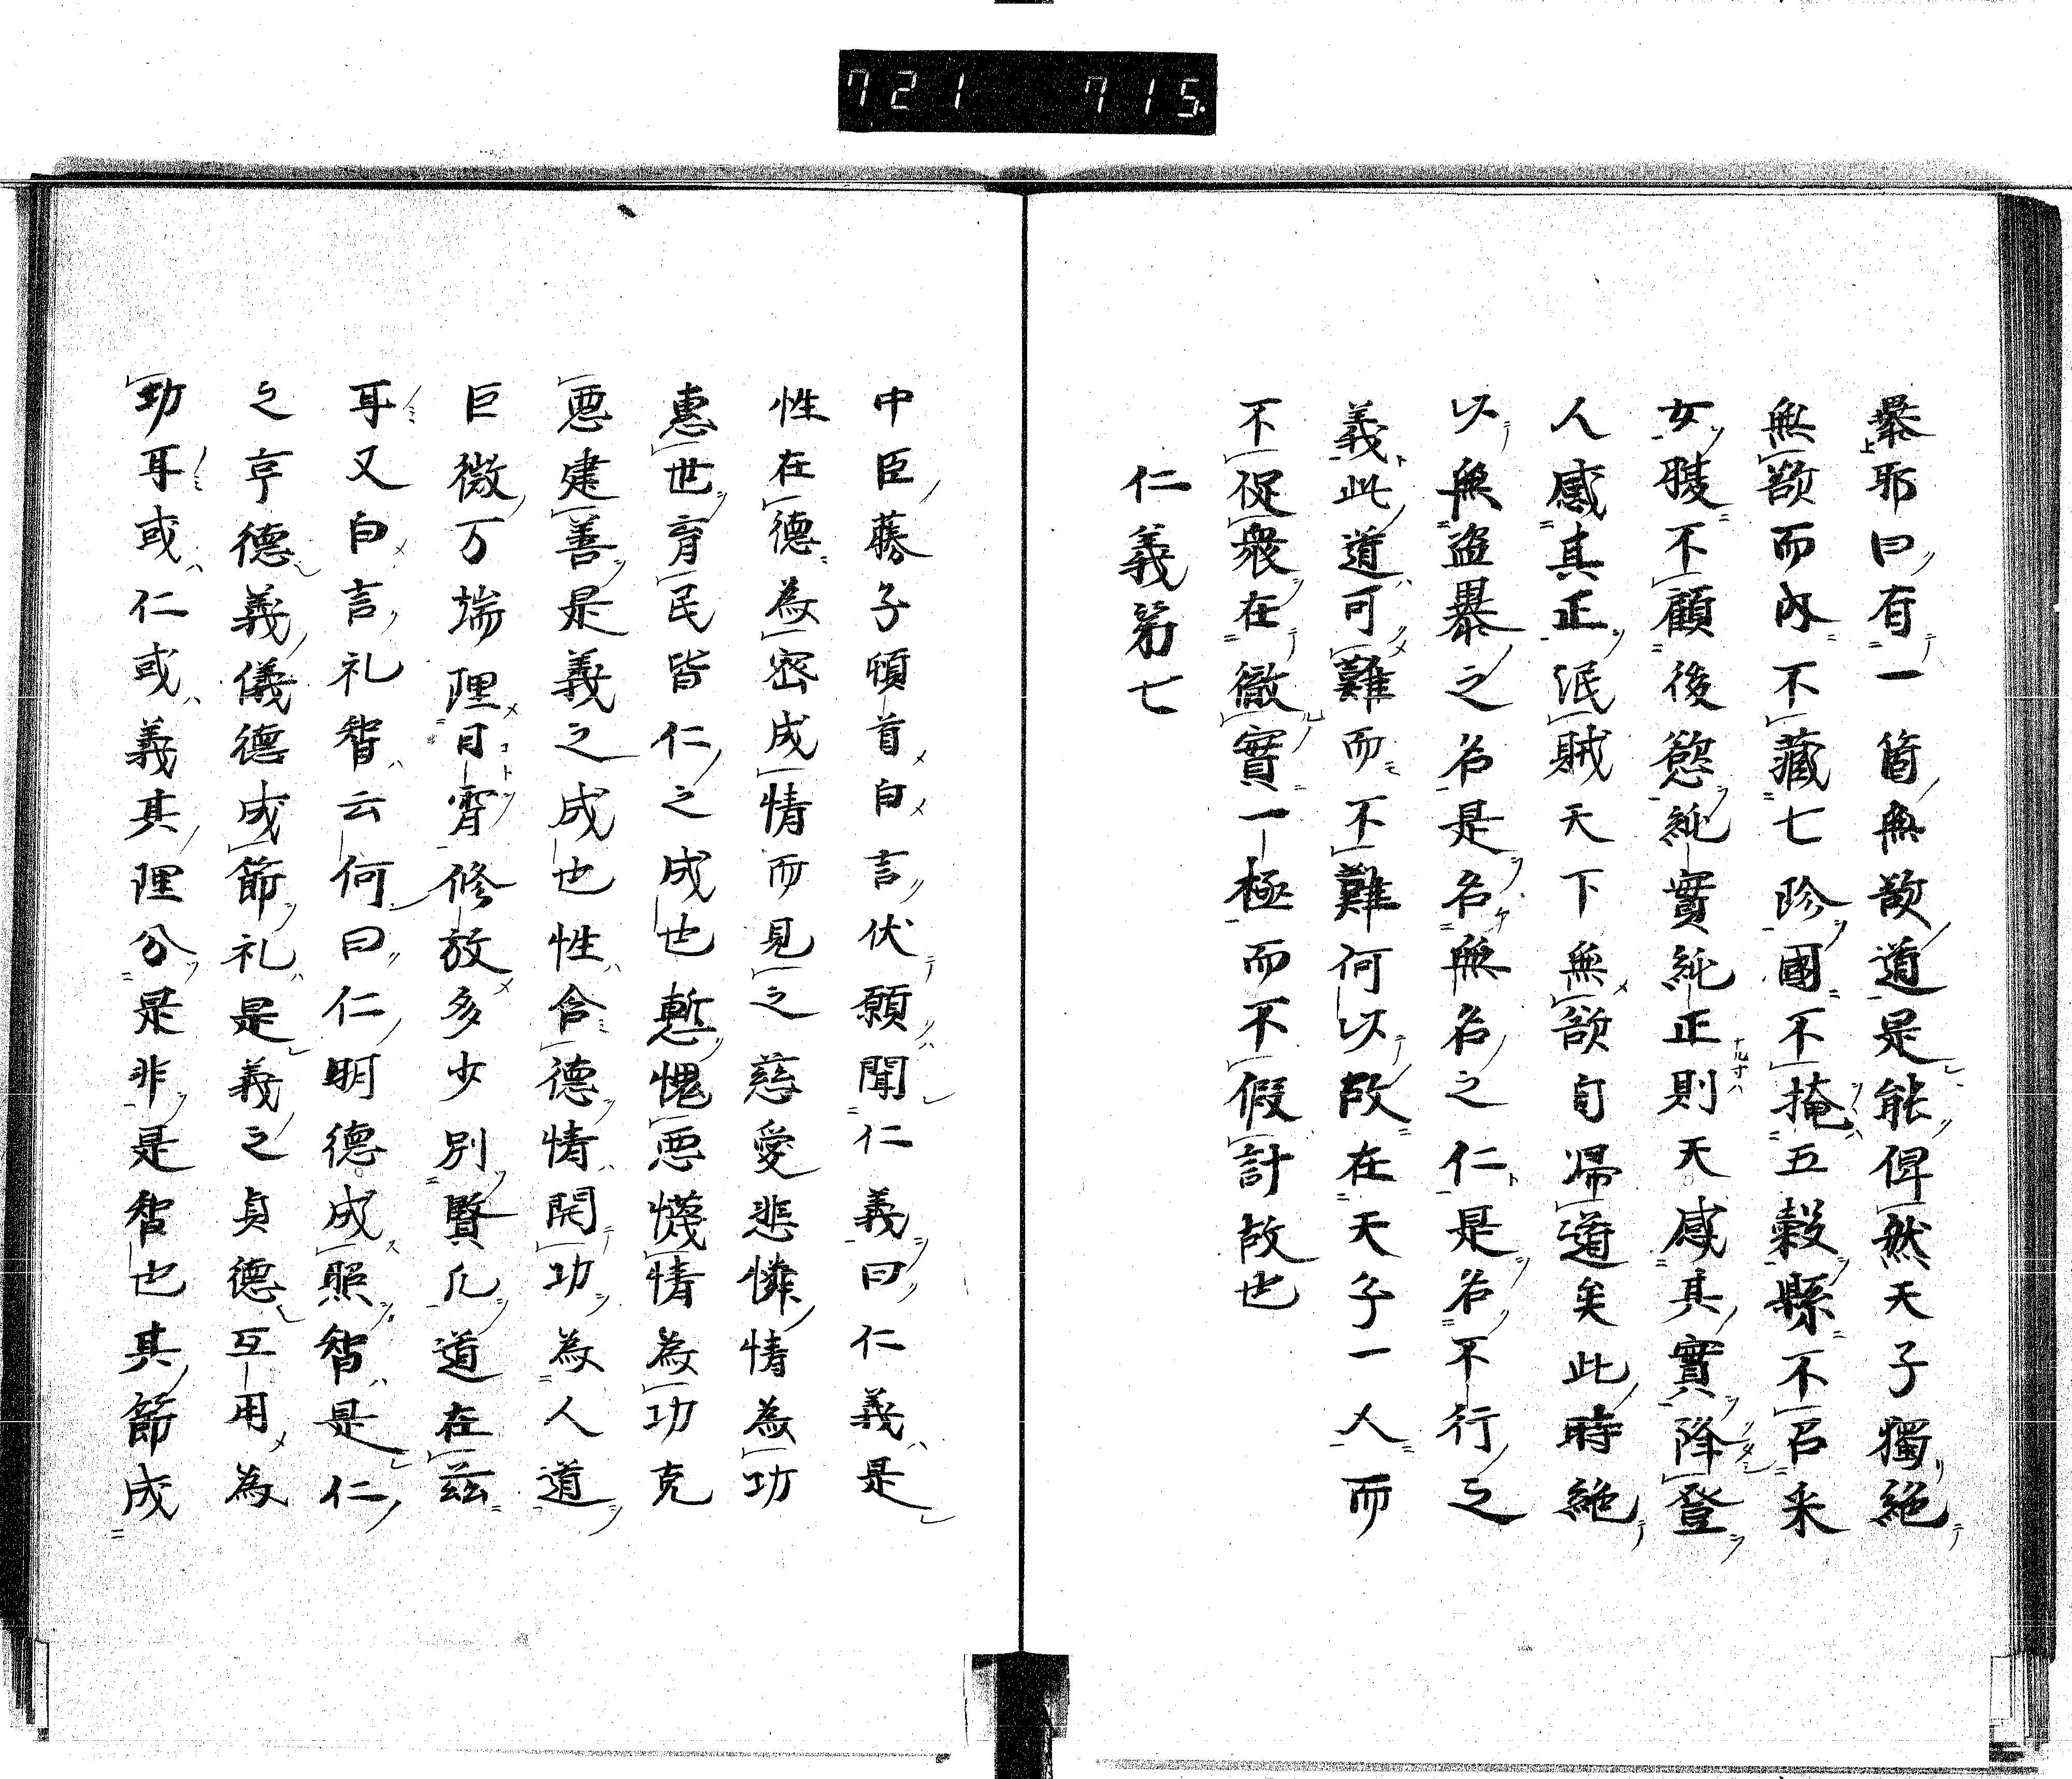 721 715
暴耶曰有一箇無欲道是能俾然天子獨絶
無欲而内不藏七珍國不掩五穀縣不召釆
女賤不顧後慾純實純正則天感其實降登
人感其正泯賊天下無欲自帰道矣此時絶
以無盗暴之名是名無名之仁是名不行之
義此道可難而不難何以故在天子一人而
不促衆在徹實一極而不假計故也
仁義第七
中臣藤子頓首白言伏願聞仁義曰仁義是
性在德為密成情而見之慈愛悲憐情為功
惠世育民皆仁之成也慙愧悪懱情為功克
悪建善是義之成也性含德情開功為人道
巨微万端理日宵修放多少別賢凡道在茲
耳又白言礼智云何曰仁明德成照智是仁
之亨德義儀德成節礼是義之貞德互用為
功耳或仁或義其理分是非是智也其節成